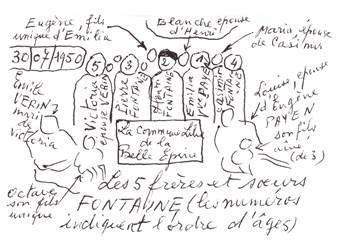 Eugène fils
unique d'Emilia
Blanche épouse
d'Henri
Maria épouse
de Casimir
30/07/1950
5
3
2
1
4
Emile
VERIN
mari
de
Victoria
Victoria
épouse VERIN
Pierre
FONTAINE
Henri
FONTAINE
Emilia
Vve PAYEN
Casimir
FONTAINE
Louise épouse
d'Eugène
PAYEN
son fils
aîné
(de 3)
La Commune Libre
de la
Belle Epine
Octave
son fils
unique
Les 5 frères et sœurs
FONTAINE (les numéros
indiquent l'ordre d'âges)